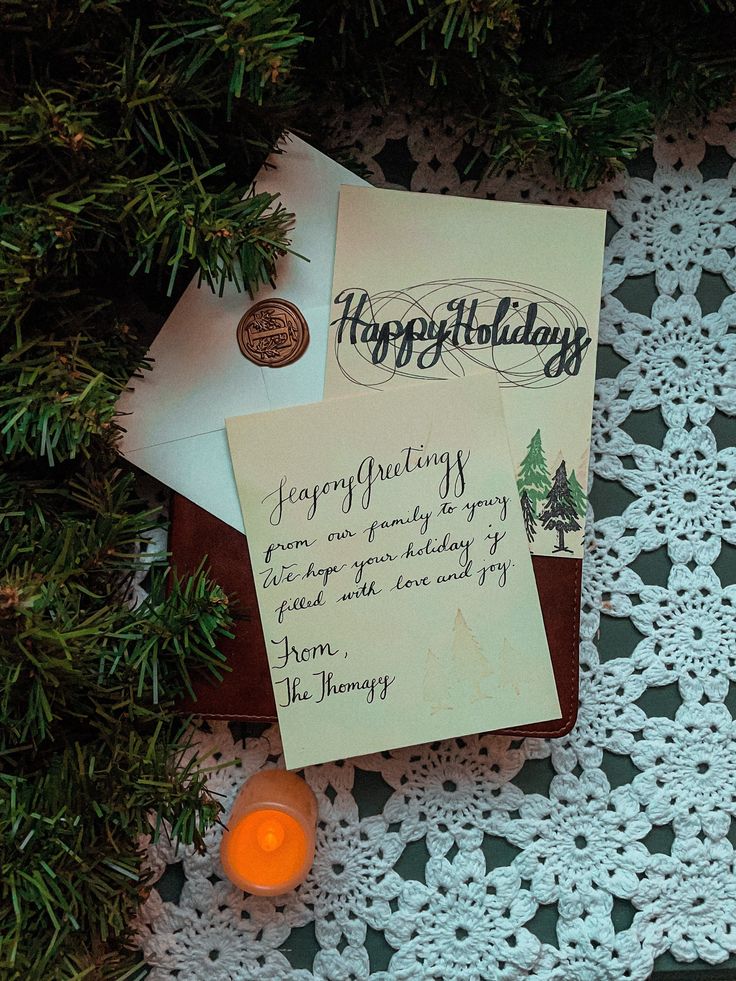 Happy Holidays
Seasons Greetings
from our family to yours
We hope your holiday is
filled with love and joy.
From,
The Thomases